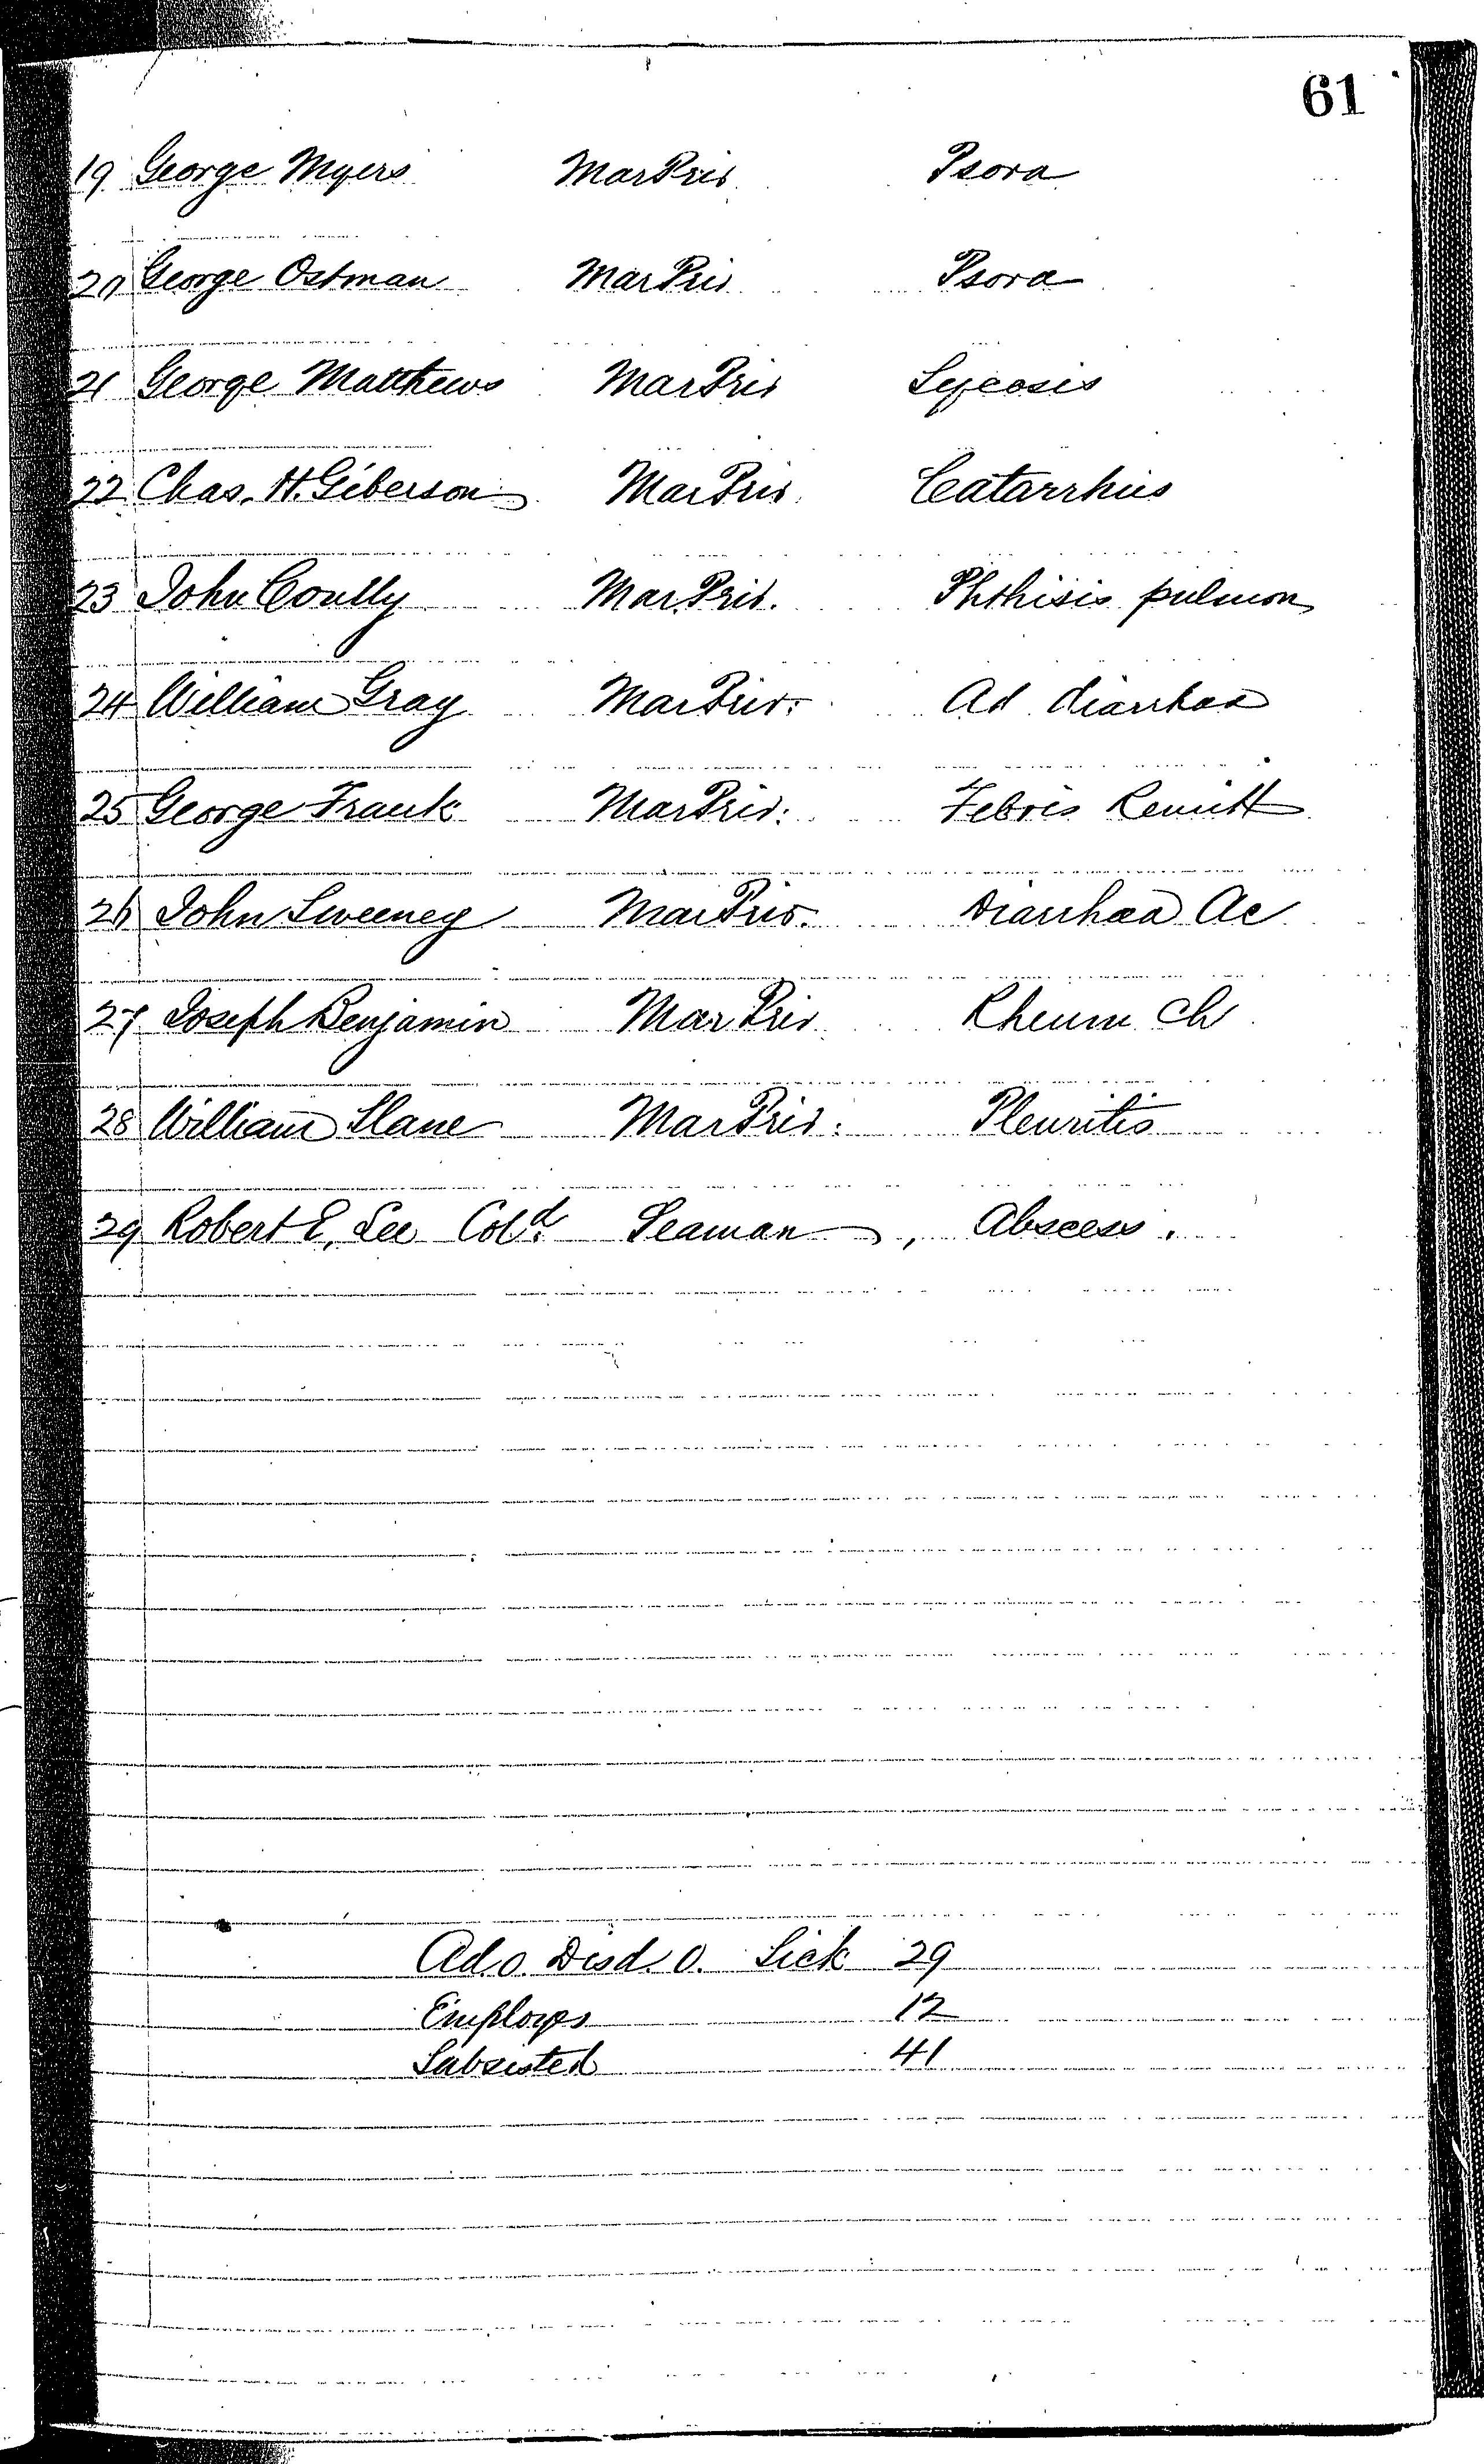 61
19 George Myers Mar Pris Psora
20 George Ostman Mar Pris Psora
21 George Matthews Mar Pris Sycosis
22 Chas. H. Giberson Mar Pris. Catarrhus
23 John Conlly Mar. Pris. Phthisis pulmon
24 William Gray Mar Pris. Ad diarrhœa
25 George Frank Mar Pris. Febris Remitt
26 John Sweeney Mar Pris. Diarrhœa Ac
27 Joseph Benjamin Mar Pris Rheum Ch
28 William Slane Mar Pris. Pleuritis
29 Robert E. Lee Cold. Seaman, Abscess.
Ad. 0. Disd. 0. Sick 29
Employes 12
Subsisted 41